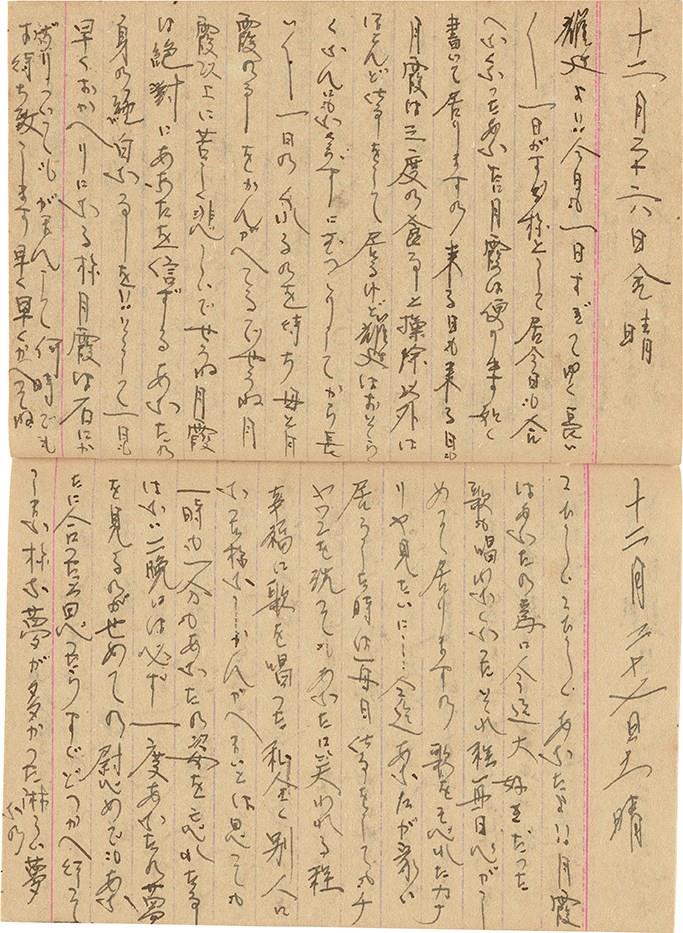 十二月二十六日金晴
雄 よ!!今日も一日すぎてゆく長い
一日がすぎ 様として居 今日も会
へなくなったあなたに月霞は便りをし
書いて居りますの 来る日も来る日も
月霞は三度の食事と掃除以外は
ほとんど 事をして居るけど はおそらく
くなんにも にむっつりしてから長い
一日の くれるのを待ち母と月
霞の事をかんがへてるでせうね月
霞以上に苦しく悲しいでせうね月霞
は絶對にあなたを信ずるあなたの
身の潔白なる事を!!そうして一日も
早くおかへりになる様月霞は石にか
じりついてもがまんして何時でも
お待ち致します早く早くかへってね
十二月二十七日土晴
さびしいさびしいあなたよ!!月霞
はあなたの為に今迄大好きだった
歌も唱わなくなったそれ程毎日心がし
めって居りますの 歌を忘れたカナ
リヤ見たいに……今迄あなたが家に
居らした時は毎日 事をしてもチ
ヤワンを洗ってもあなたに笑われる程
幸福に歌を唱った私全く別人に
なった様な……かんがへまいとは思っても
一時も一分もあなたの姿を忘れた事
はない 晩には必ず一度あなたの夢
を見るのがせめての慰めでもあな
たに会ったと思ったらすぐどつかへ行って
しまふ様な夢が多かった淋しい夢
なの